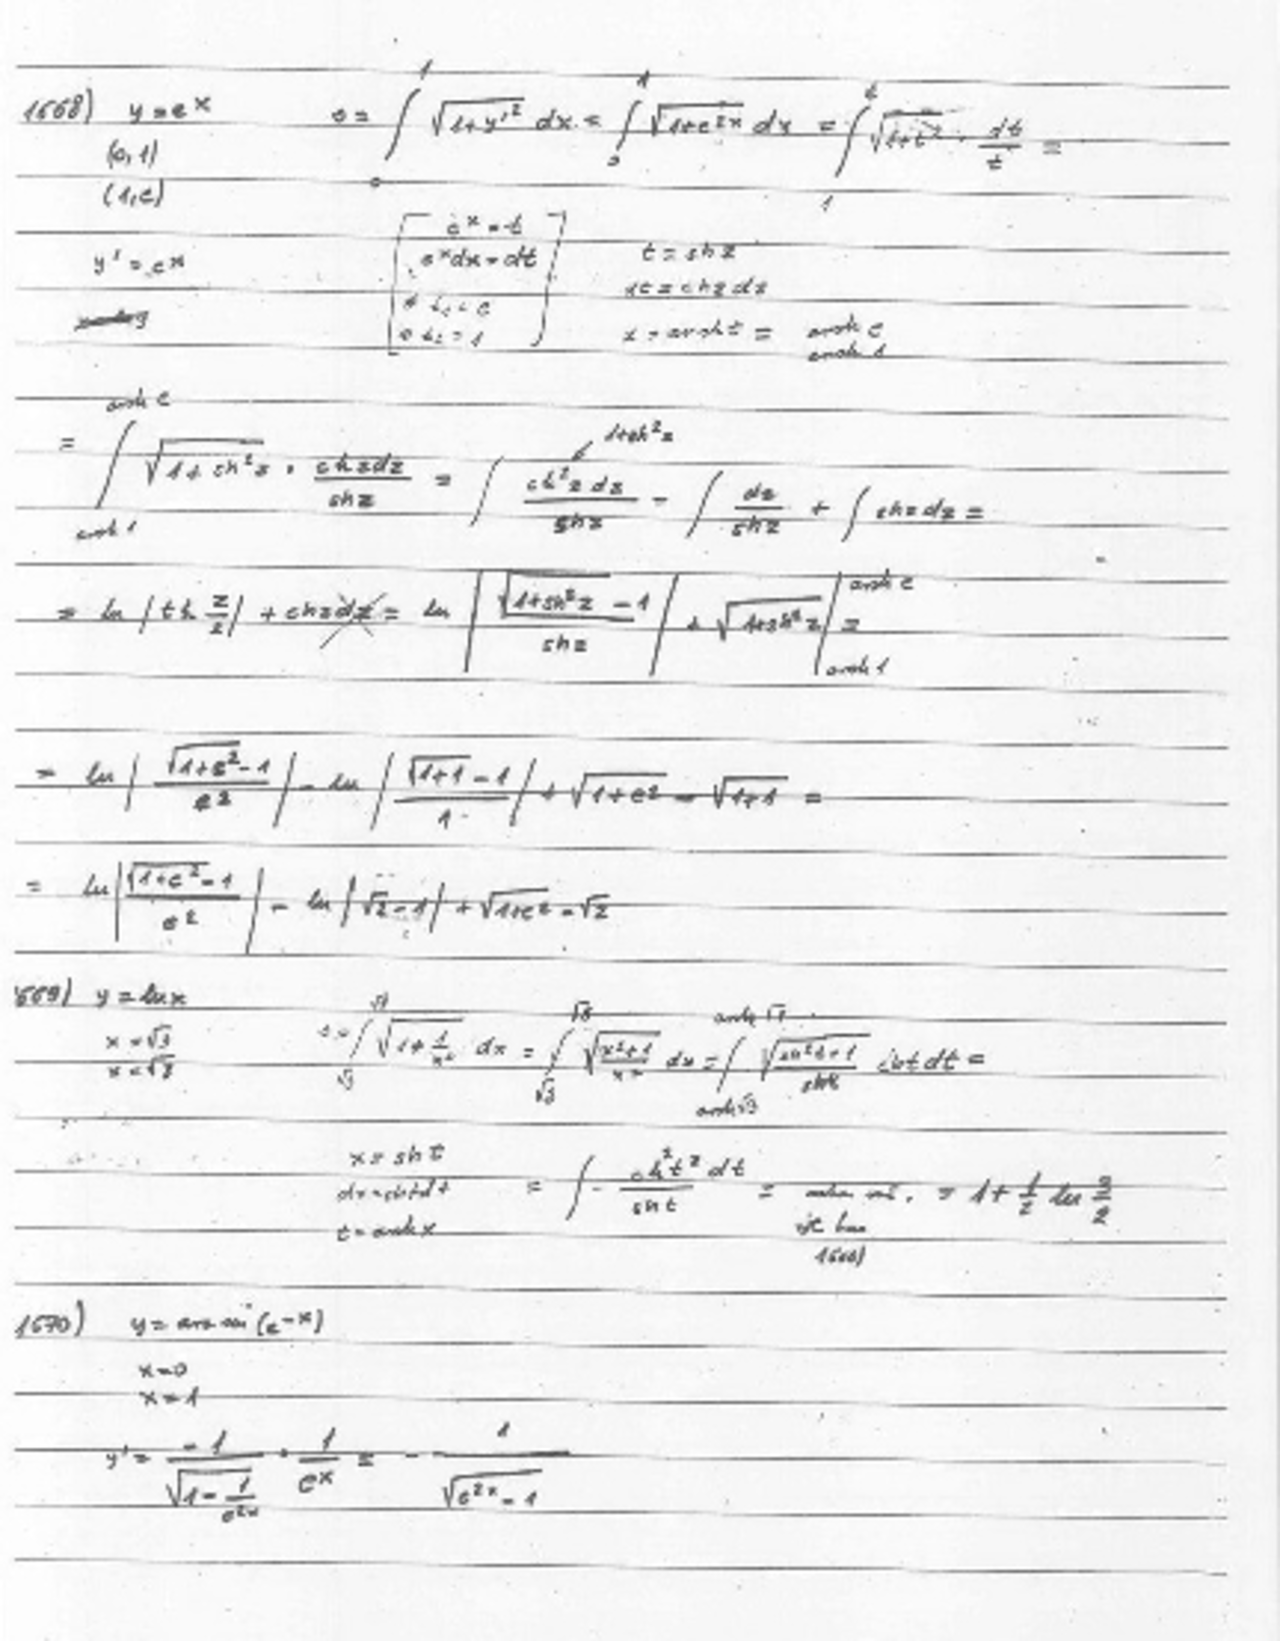 1668) y = e^x s = ∫_0^1 √(1+y'^2) dx = ∫_0^1 √(1+e^{2x}) dx = ∫_1^e √(1+t^2) · dt/t =
(0,1)
(1,e)
e^x = t
y' = e^x e^x dx = dt t = sh z
dt = ch z dz
z = arsh t = arsh e
arsh 1
= ∫_{arsh 1}^{arsh e} √(1+sh^2 z) · ch z dz / sh z = ∫ ch^2 z dz / sh z = ∫ dz / sh z + ∫ sh z dz =
1+sh^2 z
= ln |th z/2| + ch z dz = ln |(√(1+sh^2 z) - 1) / sh z| + √(1+sh^2 z) |_{arsh 1}^{arsh e} =
= ln |(√(1+e^2) - 1) / e^2| - ln |(√(1+1) - 1) / 1| + √(1+e^2) - √(1+1) =
= ln |(√(1+e^2) - 1) / e^2| - ln |√2 - 1| + √(1+e^2) - √2
1669) y = ln x
x = √3
x = √8
∫ √(1 + 1/x^2) dx = ∫_{√3}^{√8} √((x^2+1)/x^2) dx = ∫ √((sh^2 t + 1)/sh^2 t) ch t dt =
x = sh t
dx = ch t dt
t = arsh x
= ∫ ch^2 t dt / sh t = = 1 + 1/2 ln 3/2
1668)
1670) y = arc sin (e^{-x})
x = 0
x = 1
y' = -1 / √(1 - 1/e^{2x}) · 1/e^x = - 1 / √(e^{2x} - 1)